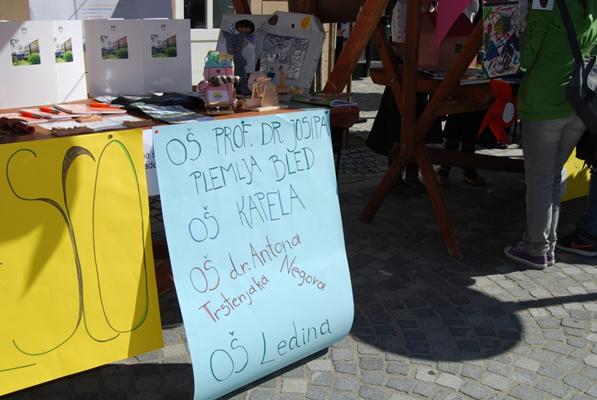 OŠ PROF. DR. JOSIPA
PLEMLJA BLED
OŠ KAPELA
OŠ dr. Antona
Trstenjaka Negova
OŠ Ledina